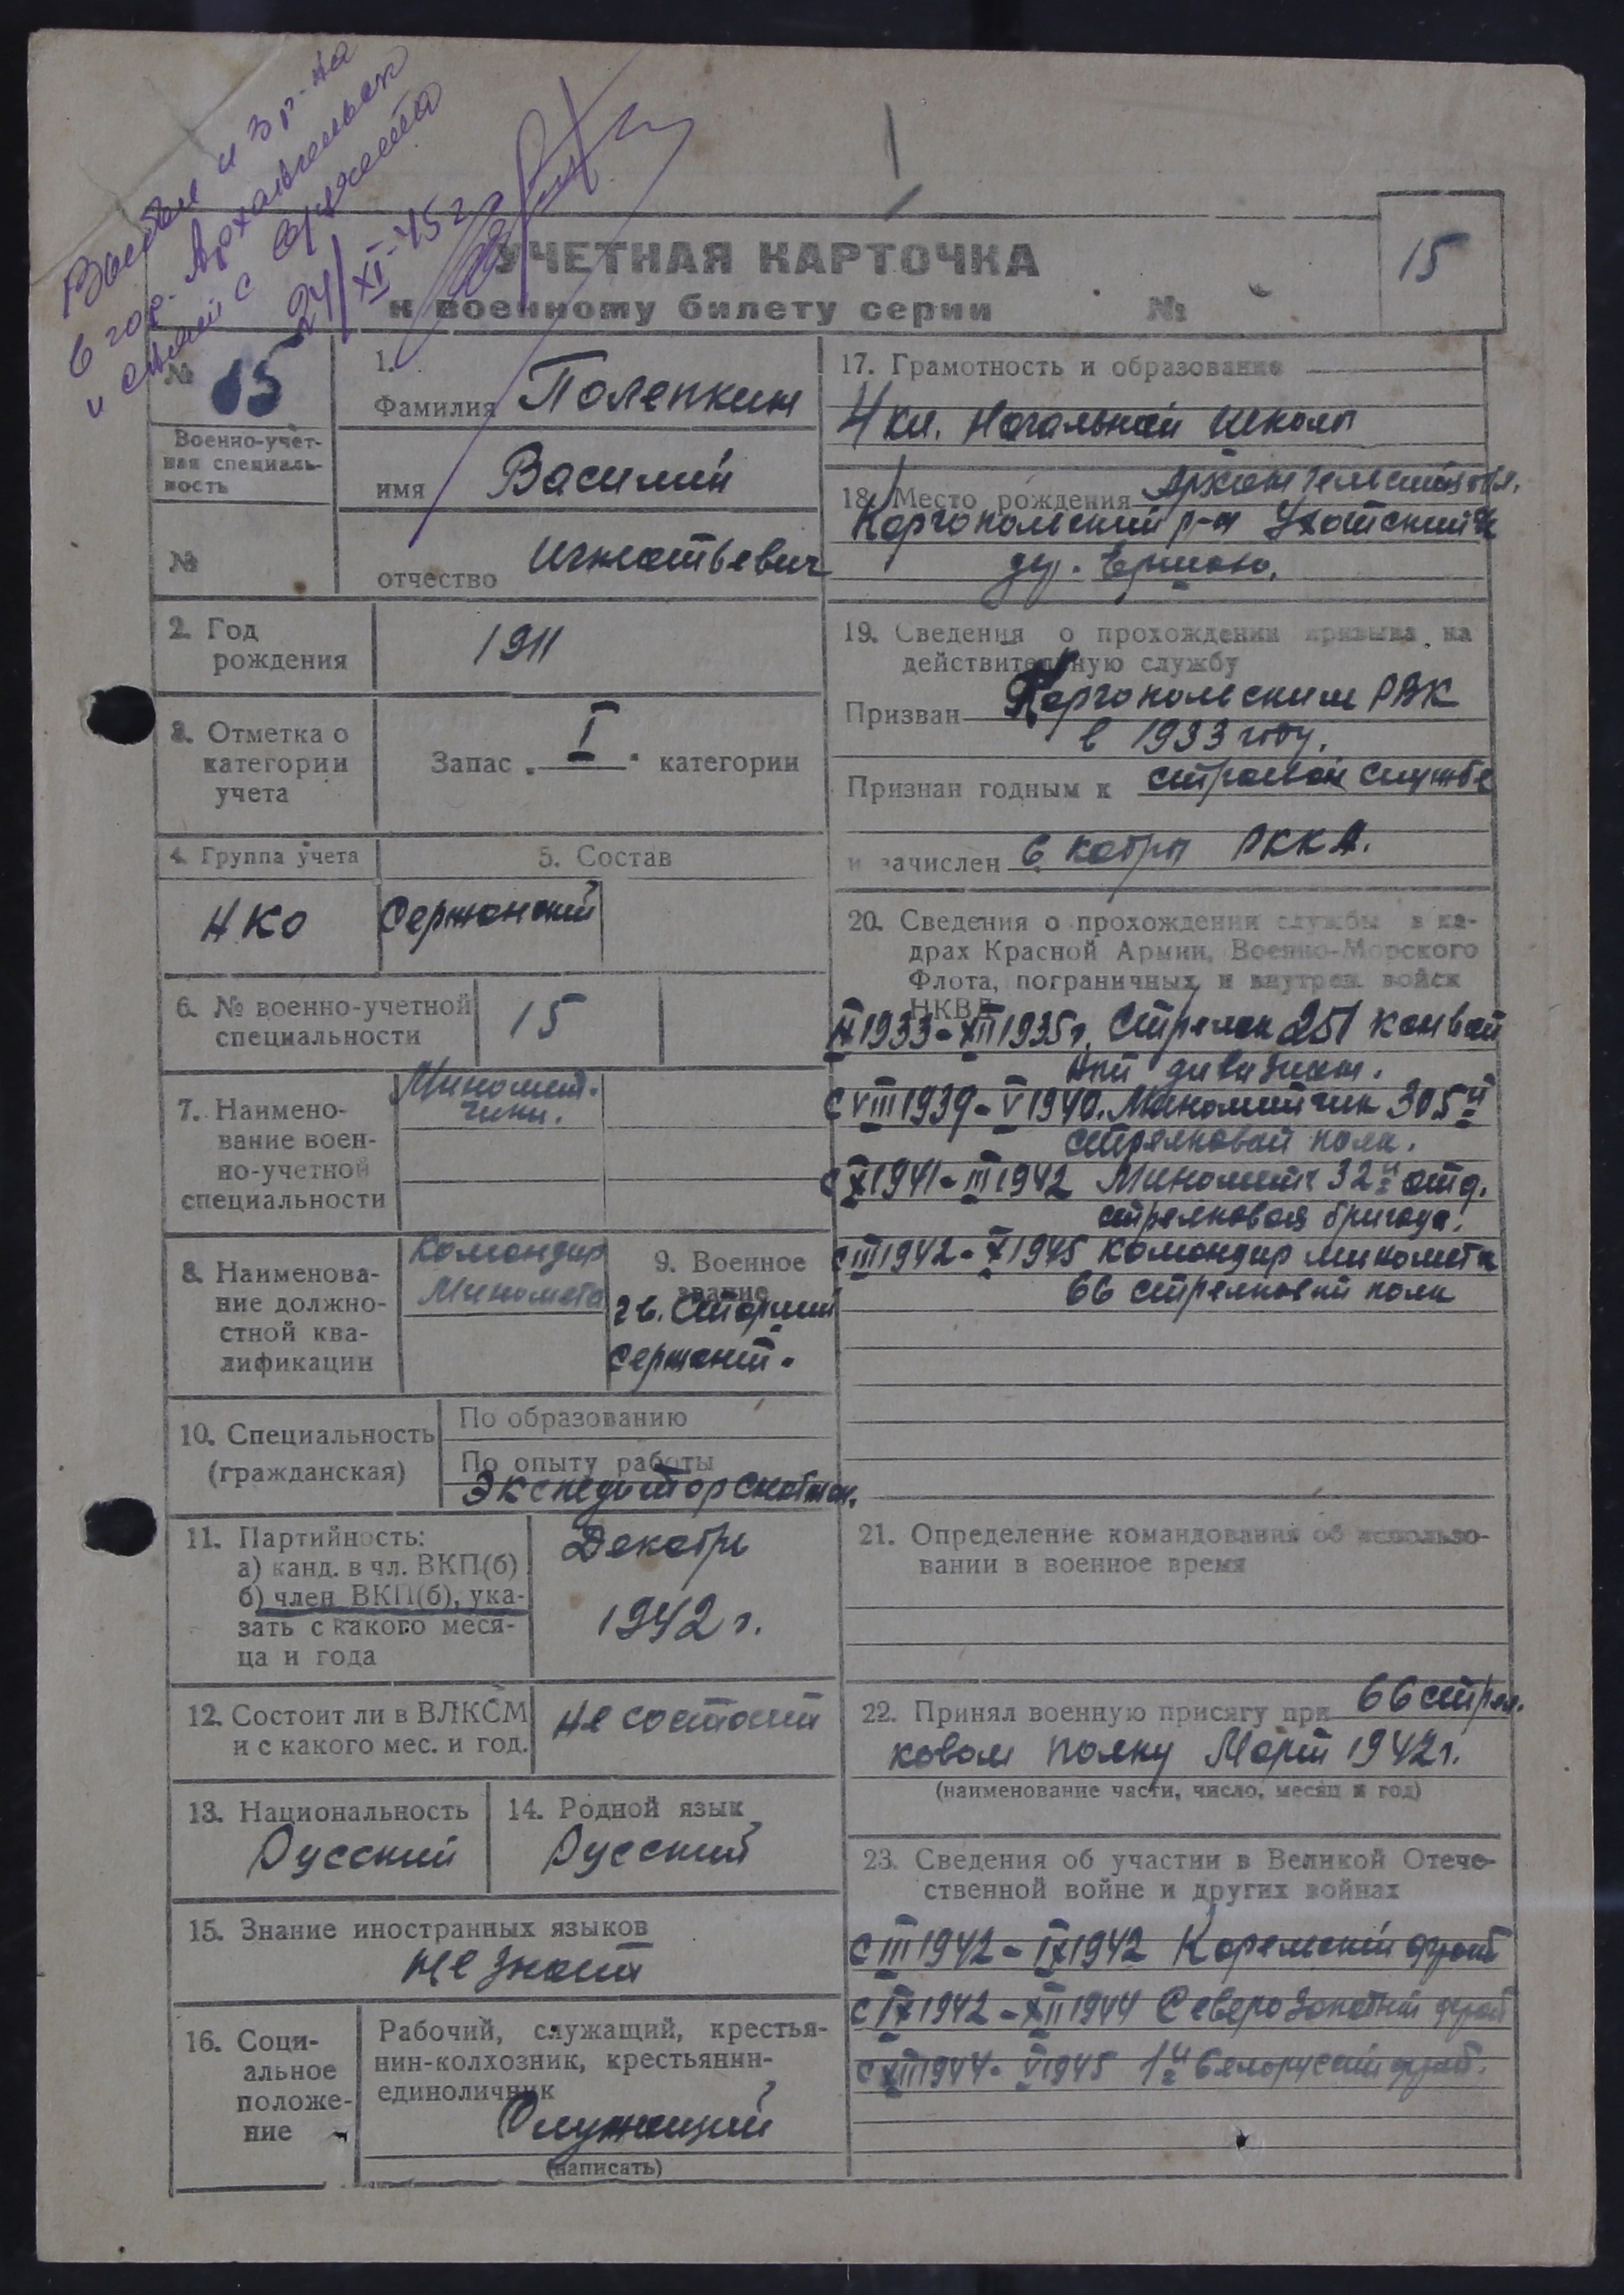 Выбыл из р-на
в гор. Архангельск
и снят с
24/XI-45 г.
15
УЧЕТНАЯ КАРТОЧКА
к военному билету серии №
№ 15
Военно-учет-
ная специаль-
ность
№
1.
Фамилия Полепкин
имя Василий
отчество Игнатьевич
2. Год
рождения
1911
3. Отметка о
категории
учета
Запас I категории
4. Группа учета
НКО
5. Состав
Сержанский
6. № военно-учетной
специальности
15
7. Наимено-
вание воен-
но-учетной
специальности
Миномет-
чики.
8. Наименова-
ние должно-
стной ква-
лификации
Командир
Миномета
9. Военное
звание
гв. Старший
сержант.
10. Специальность
(гражданская)
По образованию
По опыту работы
Экспедитор
11. Партийность:
а) канд. в чл. ВКП(б)
б) член ВКП(б), ука-
зать с какого меся-
ца и года
Декабрь
1942 г.
12. Состоит ли в ВЛКСМ
и с какого мес. и год.
не состоит
13. Национальность
Русский
14. Родной язык
Русский
15. Знание иностранных языков
не знает
16. Соци-
альное
положе-
ние
Рабочий, служащий, крестья-
нин-колхозник, крестьянин-
единоличник
Служащий
(написать)
17. Грамотность и образование
4 кл. Начальной школы
18. Место рождения Архангельская обл.
Каргопольский р-н Ухотский
дер.
19. Сведения о прохождении призыва на
действительную службу
Призван Каргопольским РВК
в 1933 году.
Признан годным к строевой службе
и зачислен в кадры РККА.
20. Сведения о прохождении службы в ка-
драх Красной Армии, Военно-Морского
Флота, пограничных и внутрен. войск
НКВД
IX 1933 - XII 1935 г. Стрелок 251 конвой
ный дивизион.
С VIII 1939 - V 1940. Минометчик 305й
стрелковый полк.
с X 1941 - III 1942 Минометч 32й отд.
стрелковая бригада.
с III 1942 - X 1945 командир миномета
66 стрелковый полк
21. Определение командования об использо-
вании в военное время
22. Принял военную присягу при 66 стрел.
ковом полку Март 1942 г.
(наименование части, число, месяц и год)
23. Сведения об участии в Великой Отече-
ственной войне и других войнах
с III 1942 - IX 1942 Карельский фронт
с IX 1942 - XII 1944 Северозападный фронт
с XII 1944 - V 1945 1й Белорусский фронт.